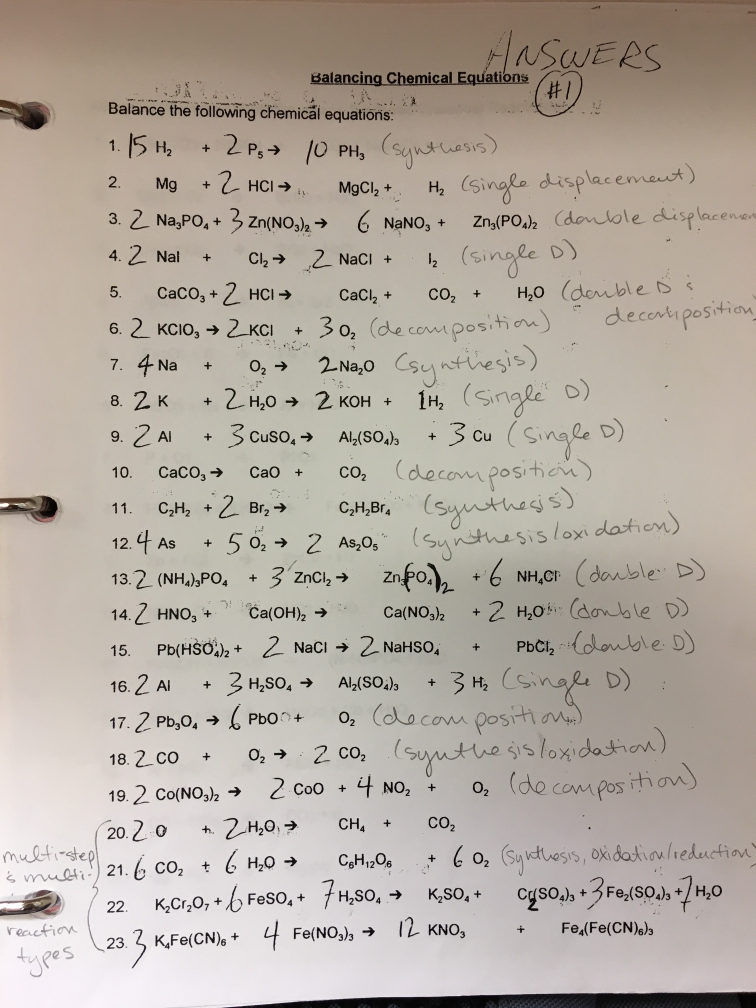 ANSWERS
Balancing Chemical Equations
#1
Balance the following chemical equations:
1. 15 H₂ + 2 P₅ → 10 PH₃ (synthesis)
2. Mg + 2 HCl → MgCl₂ + H₂ (single displacement)
3. 2 Na₃PO₄ + 3 Zn(NO₃)₂ → 6 NaNO₃ + Zn₃(PO₄)₂ (double displacemen
4. 2 NaI + Cl₂ → 2 NaCl + I₂ (single D)
5. CaCO₃ + 2 HCl → CaCl₂ + CO₂ + H₂O (double D &
decomposition)
6. 2 KClO₃ → 2 KCl + 3 O₂ (decomposition)
7. 4 Na + O₂ → 2 Na₂O (synthesis)
8. 2 K + 2 H₂O → 2 KOH + 1 H₂ (single D)
9. 2 Al + 3 CuSO₄ → Al₂(SO₄)₃ + 3 Cu (single D)
10. CaCO₃ → CaO + CO₂ (decomposition)
11. C₂H₂ + 2 Br₂ → C₂H₂Br₄ (synthesis)
12. 4 As + 5 O₂ → 2 As₂O₅ (synthesis/oxidation)
13. 2 (NH₄)₃PO₄ + 3 ZnCl₂ → Zn₃(PO₄)₂ + 6 NH₄Cl (double D)
14. 2 HNO₃ + Ca(OH)₂ → Ca(NO₃)₂ + 2 H₂O (double D)
15. Pb(HSO₄)₂ + 2 NaCl → 2 NaHSO₄ + PbCl₂ (double D)
16. 2 Al + 3 H₂SO₄ → Al₂(SO₄)₃ + 3 H₂ (single D)
17. 2 Pb₃O₄ → 6 PbO + O₂ (decomposition)
18. 2 CO + O₂ → 2 CO₂ (synthesis/oxidation)
19. 2 Co(NO₃)₂ → 2 CoO + 4 NO₂ + O₂ (decomposition)
20. 2 O + 2 H₂O → CH₄ + CO₂
21. 6 CO₂ + 6 H₂O → C₆H₁₂O₆ + 6 O₂ (synthesis, oxidation/reduction)
22. K₂Cr₂O₇ + 6 FeSO₄ + 7 H₂SO₄ → K₂SO₄ + Cr₂(SO₄)₃ + 3 Fe₂(SO₄)₃ + 7 H₂O
23. 3 K₄Fe(CN)₆ + 4 Fe(NO₃)₃ → 12 KNO₃ + Fe₄(Fe(CN)₆)₃
multi-step
& multi-
reaction
types